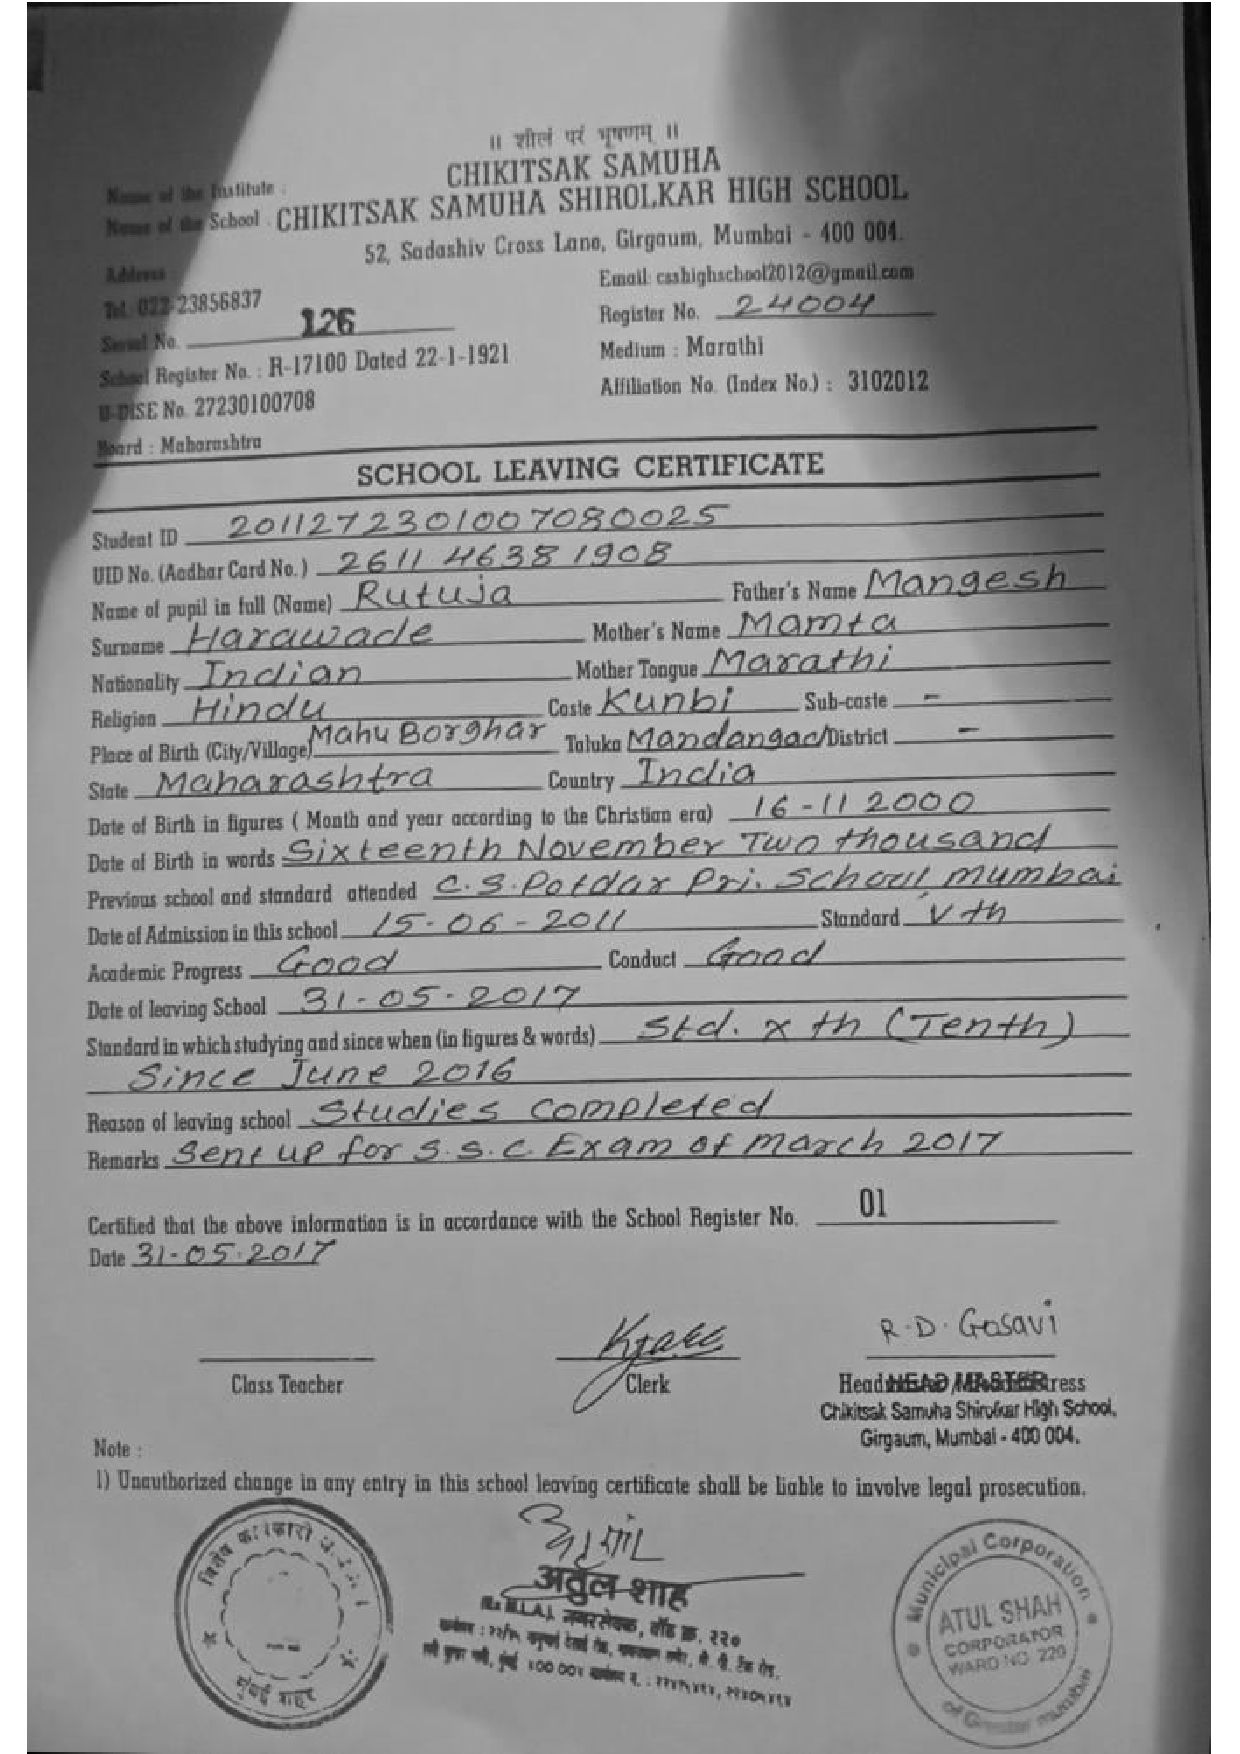 ॥ शीलं परं भूषणम् ॥
Name of the Institute : CHIKITSAK SAMUHA
Name of the School : CHIKITSAK SAMUHA SHIROLKAR HIGH SCHOOL
Address 52, Sadashiv Cross Lane, Girgaum, Mumbai - 400 004.
Tel. 022-23856837 Email: csshighschool2012@gmail.com
Serial No. 126 Register No. 24004
School Register No. : R-17100 Dated 22-1-1921 Medium : Marathi
U-DISE No. 27230100708 Affiliation No. (Index No.) : 3102012
Board : Maharashtra
SCHOOL LEAVING CERTIFICATE
Student ID 2011272301007080025
UID No. (Aadhar Card No.) 2611 4638 1908
Name of pupil in full (Name) Rutuja Father's Name Mangesh
Surname Harawade Mother's Name Mamta
Nationality Indian Mother Tongue Marathi
Religion Hindu Caste Kunbi Sub-caste -
Place of Birth (City/Village) Mahu Borghar Taluka Mandangad District -
State Maharashtra Country India
Date of Birth in figures ( Month and year according to the Christian era) 16-11 2000
Date of Birth in words Sixteenth November Two thousand
Previous school and standard attended C.S.Potdar Pri. School, Mumbai
Date of Admission in this school 15-06-2011 Standard Vth
Academic Progress Good Conduct Good
Date of leaving School 31-05-2017
Standard in which studying and since when (in figures & words) Std. x th (Tenth)
Since June 2016
Reason of leaving school Studies completed
Remarks Sent up for S.S.C. Exam of March 2017
Certified that the above information is in accordance with the School Register No. 01
Date 31-05-2017
R.D. Gosavi
Class Teacher Clerk HEAD MASTER
Chikitsak Samuha Shirolkar High School,
Girgaum, Mumbai - 400 004.
Note :
1) Unauthorized change in any entry in this school leaving certificate shall be liable to involve legal prosecution.
विशेष कार्यकारी
मुंबई शहर
अतुल शाह
नगरसेवक, वॉर्ड क्र. २२०
Municipal Corporation
ATUL SHAH
CORPORATOR
WARD NO. 220
of Greater mumbai